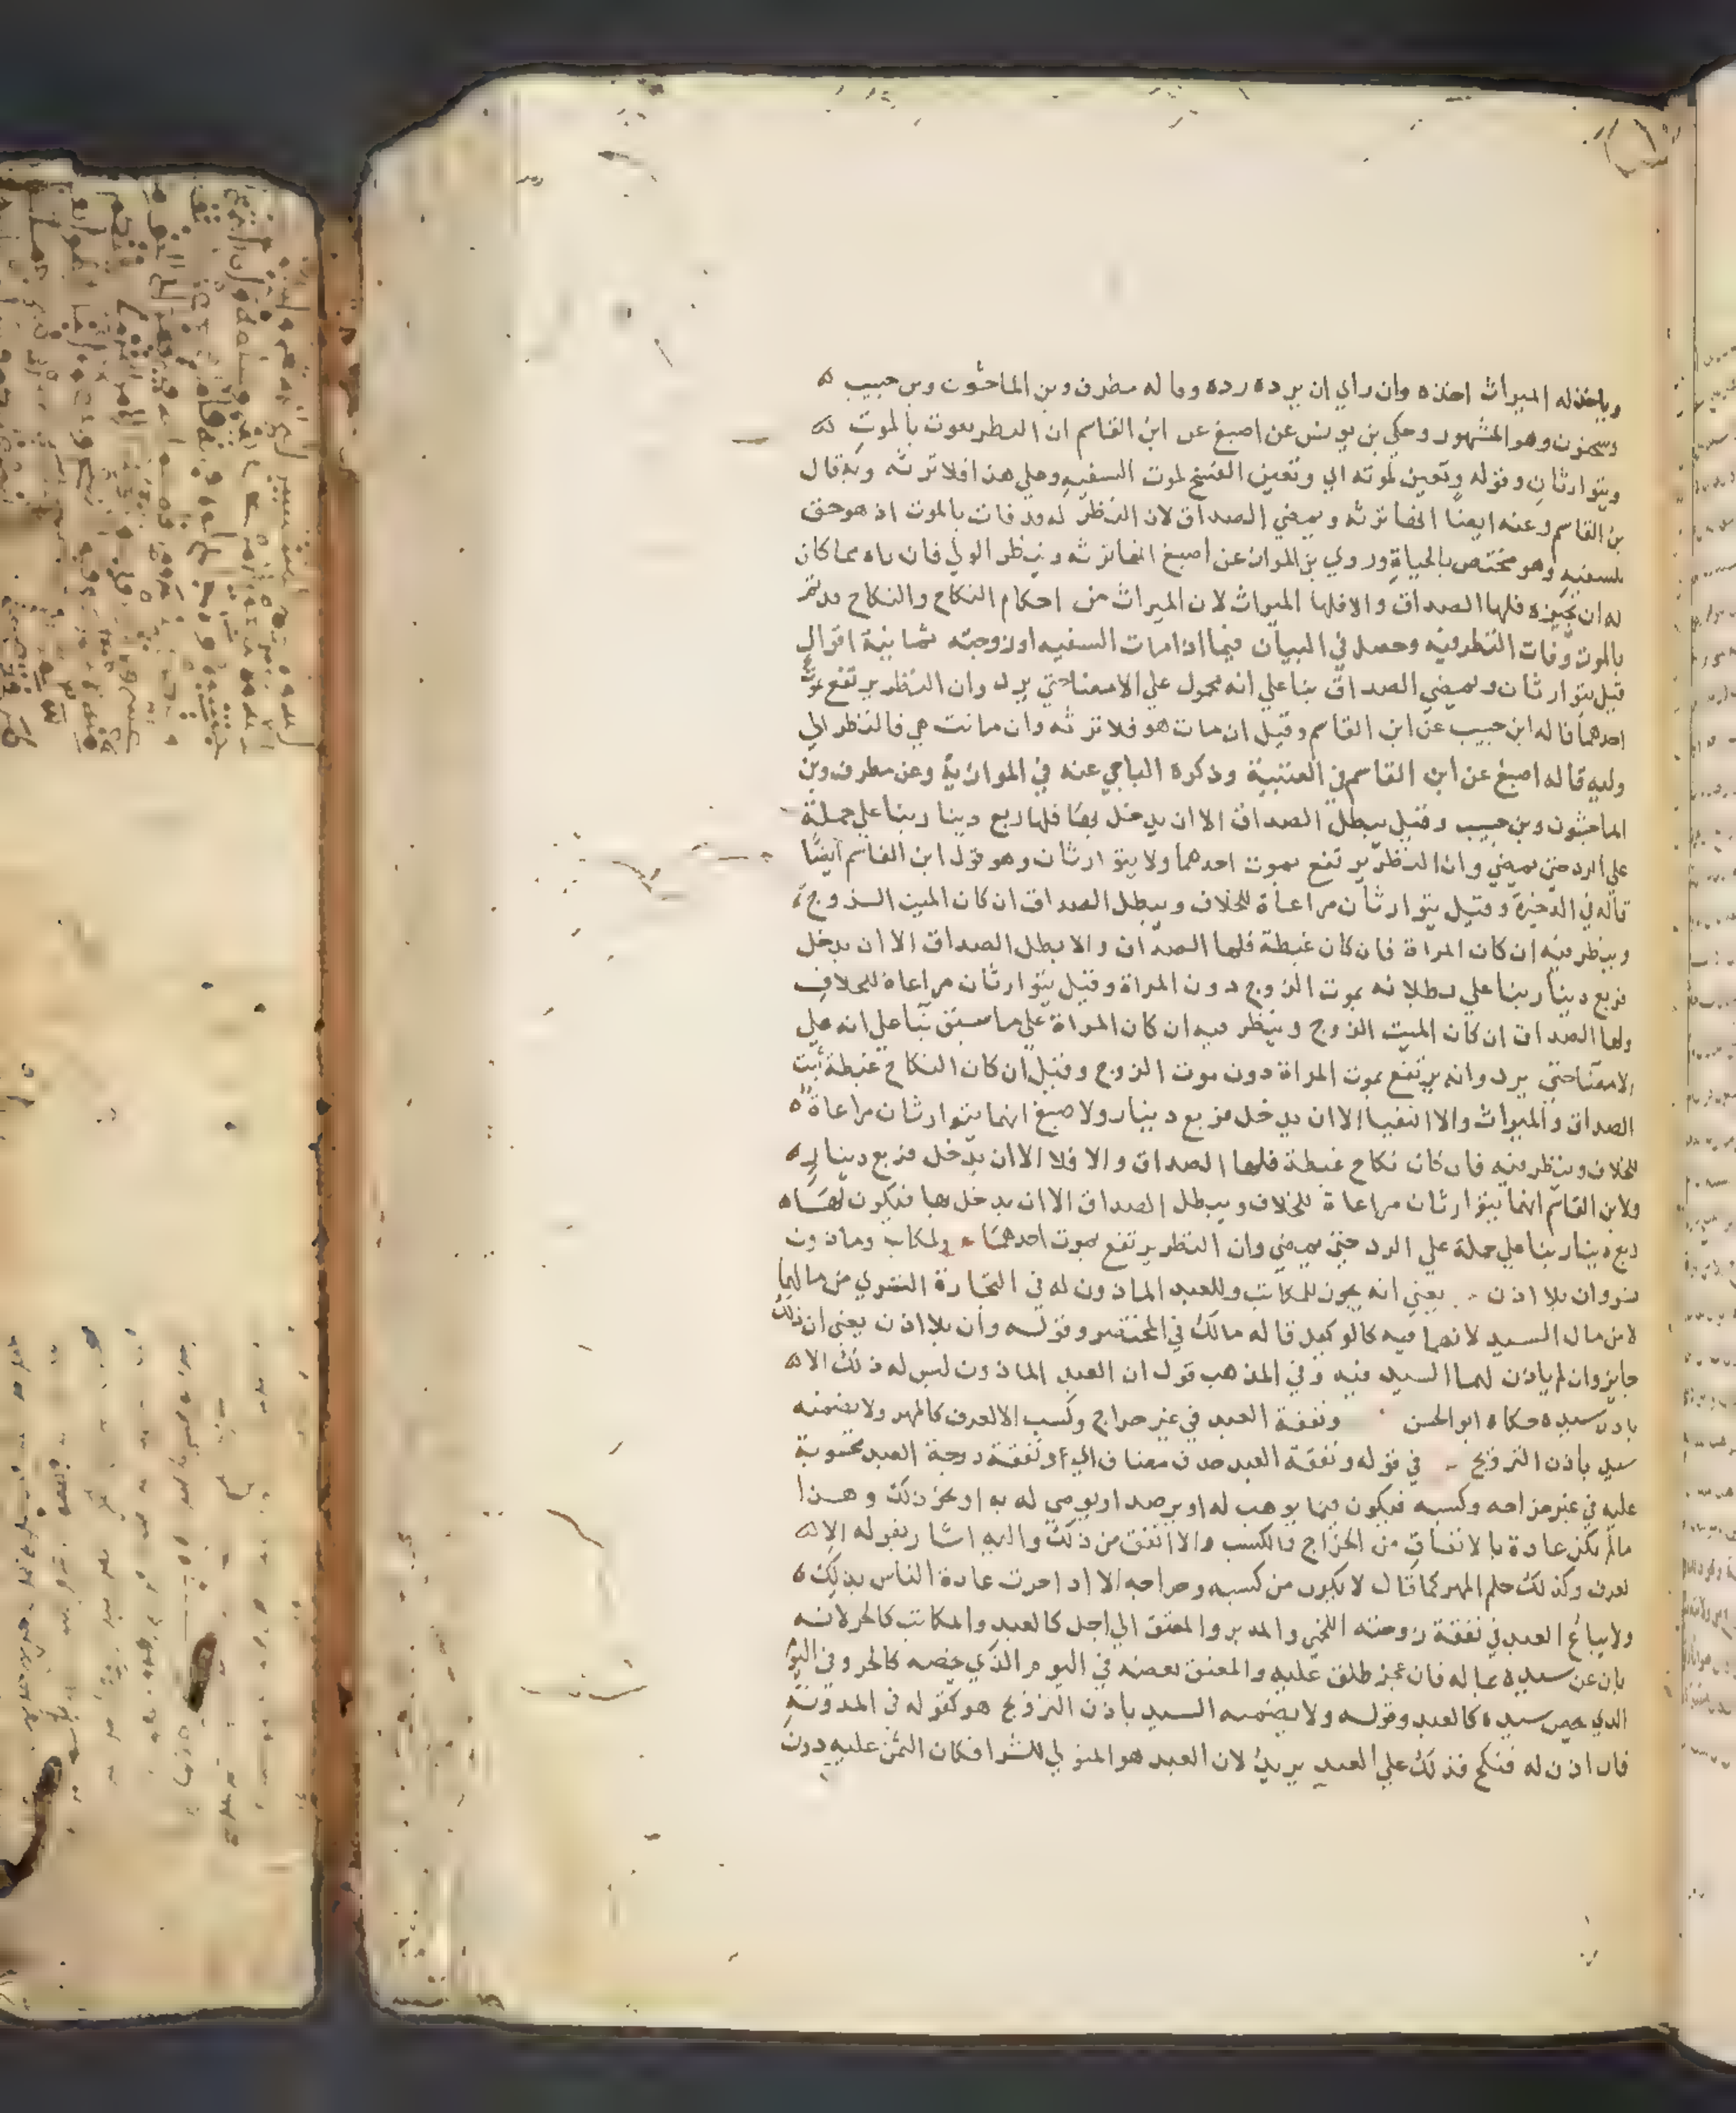 وياخذ له الميراث اخذه وان راي ان يرده رده وقاله مطرف وبن الماجشون وبن حبيب
وسحنون وهو المشهور وحكي بن يونس عن اصبغ عن ابن القاسم ان النظر يفوت بالموت
ويتوارثان وقوله وتعين لموته اي وتعين الفسخ لموت السفيه وعلي هذا فلا ترثه وبه قال
بن القاسم وعنه ايضا انها ترثه ويمضي الصداق لان النظر له وقد فات بالموت اذ هو حق
للسفيه وهو مختص بالحياة وروي بن المواز عن اصبغ انها ترثه وينظر الولي فان راه مما كان
له ان يجيزه فلها الصداق والا فلها الميراث لان الميراث من احكام النكاح والنكاح قد تم
بالموت وفات النظر فيه وحصل في البيان فيما اذا مات السفيه او زوجته ثمانية اقوال
قيل يتوارثان ويمضي الصداق بنا علي انه محمول علي الامضا حتي يرد وان النظر يرتفع بموت
احدهما قاله ابن حبيب عن ابن القاسم وقيل ان مات هو فلا ترثه وان ماتت هي فالنظر الي
وليه قاله اصبغ عن ابن القاسم في العتبية وذكره الباجي عنه في الموازية وعن مطرف وبن
الماجشون وبن حبيب وقيل يبطل الصداق الا ان يدخل بها فلها ربع دينار بنا علي حملة
علي الرد حتي يمضي وان النظر يرتفع بموت احدهما ولا يتوارثان وهو قول ابن القاسم ايضا
قاله في الذخيرة وقيل يتوارثان مراعاة للخلاف ويبطل الصداق ان كان الميت الزوج
وينظر فيه ان كان المراة فان كان غبطة فلها الصداق والا بطل الصداق الا ان يدخل
فربع دينار بنا علي بطلانه بموت الزوج دون المراة وقيل يتوارثان مراعاة للخلاف
ولها الصداق ان كان الميت الزوج وينظر فيه ان كان المراة علي ما سبق بنا علي انه علي
الامضا حتي يرد وانه يرتفع بموت المراة دون موت الزوج وقيل ان كان النكاح غبطة ثبت
الصداق والميراث والا انتفيا الا ان يدخل فربع دينار ولاصبغ انهما يتوارثان مراعاة
للخلاف وينظر فيه فان كان نكاح غبطة فلها الصداق والا فلا الا ان يدخل فربع دينار
ولابن القاسم انهما يتوارثان مراعاة للخلاف ويبطل الصداق الا ان يدخل بها فيكون لها
ربع دينار بنا علي حملة علي الرد حتي يمضي وان النظر يرتفع بموت احدهما ولمكاتب وماذون
تسر وان بلا اذن يعني انه يجوز للمكاتب وللعبد الماذون له في التجارة التسري من مالهما
لا من مال السيد لانهما فيه كالوكيل قاله مالك في المختصر وقوله وان بلا اذن يعني ان ذلك
جايز وان لم ياذن لهما السيد فيه وفي المذهب قول ان العبد الماذون ليس له ذلك الا
باذن سيده حكاه ابو الحسن ونفقة العبد في غير خراج وكسب الا لعرف كالمهر ولا يضمنه
سيد باذن التزويج في قوله ونفقة العبد حذف مضاف اي ونفقة زوجة العبد محسوبة
عليه في غير خراجه وكسبه فيكون فيما يوهب له او يرصد او يوصي له به او نحو ذلك وهذا
ما لم تكن عادة بالانفاق من الخراج والكسب والا انفق من ذلك واليه اشار بقوله الا
لعرف وكذلك حكم المهر كما قال لا يكون من كسبه وخراجه الا اذا جرت عادة الناس بذلك
ولا يباع العبد في نفقة زوجته اللخمي والمدبر والمعتق الي اجل كالعبد والمكاتب كالحر لانه
بان عن سيده بماله فان عجز طلق عليه والمعتق بعضه في اليوم الذي يخصه كالحر وفي اليوم
الذي يخص سيده كالعبد وقوله ولا يضمنه السيد باذن التزويج هو كقوله في المدونة
فان اذن له فنكح فذلك علي العبد يريد لان العبد هو المتولي للشرا فكان الثمن عليه دون